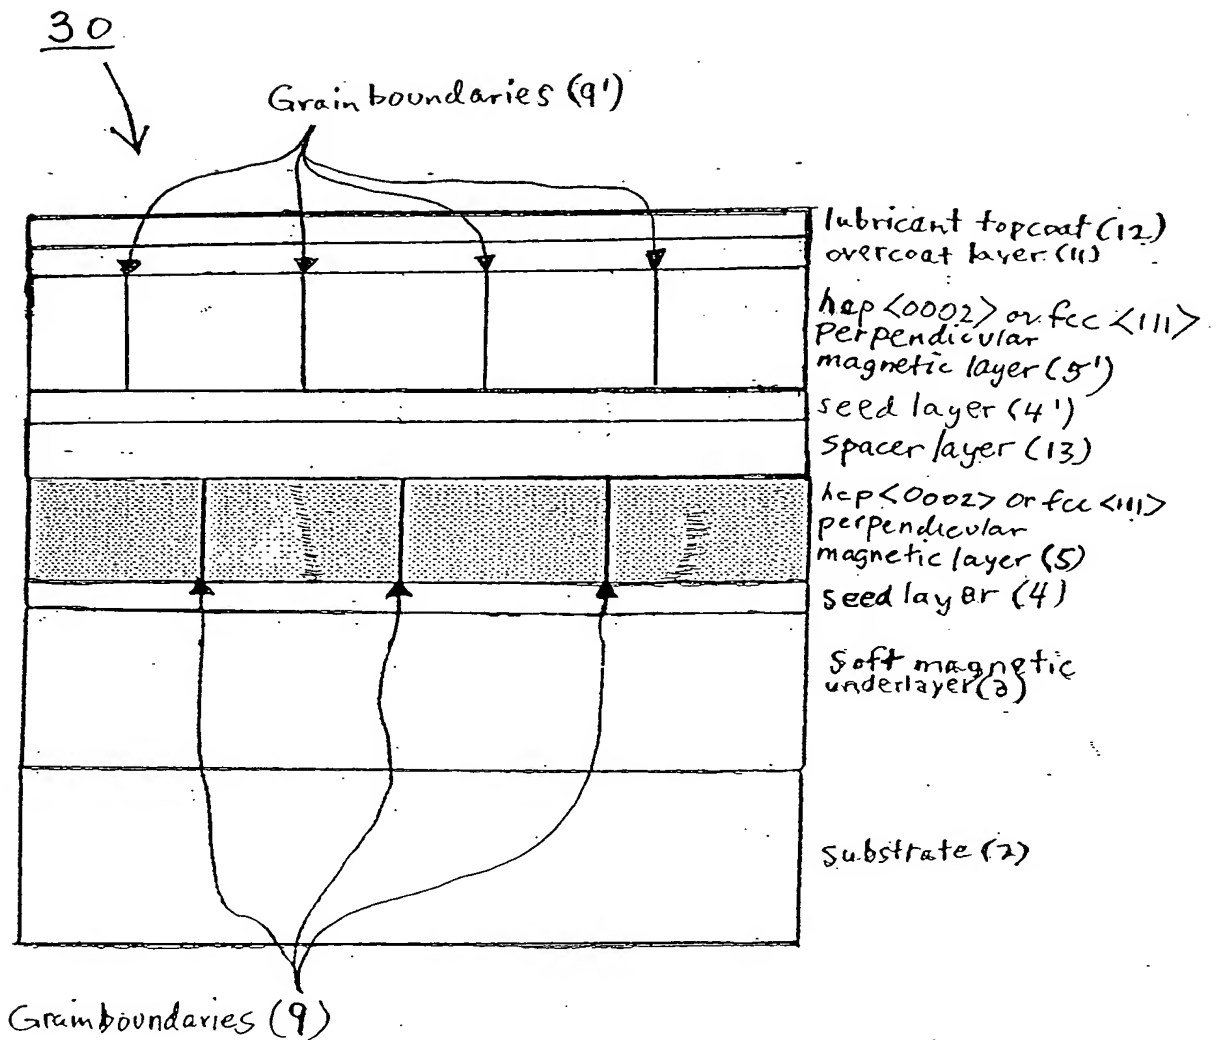 30
Grain boundaries (9')
lubricant topcoat (12)
overcoat layer (11)
hcp <0002> or fcc <111>
perpendicular
magnetic layer (5')
seed layer (4')
spacer layer (13)
hcp <0002> or fcc <111>
perpendicular
magnetic layer (5)
seed layer (4)
soft magnetic
underlayer (3)
substrate (2)
Grain boundaries (9)